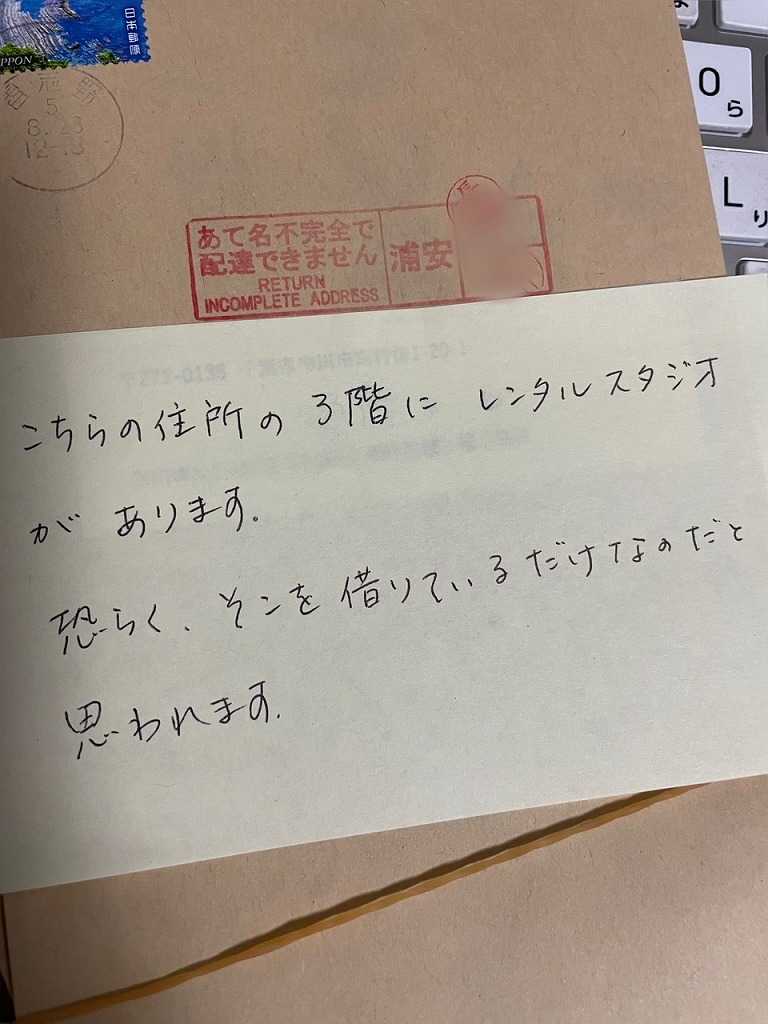 日本郵便
NIPPON
5
8.23
12-
O
ら
L
り
あて名不完全で
配達できません
RETURN
INCOMPLETE ADDRESS
浦安
こちらの住所の3階に レンタルスタジオ
が あります。
恐らく、そこを借りているだけなのだと
思われます。